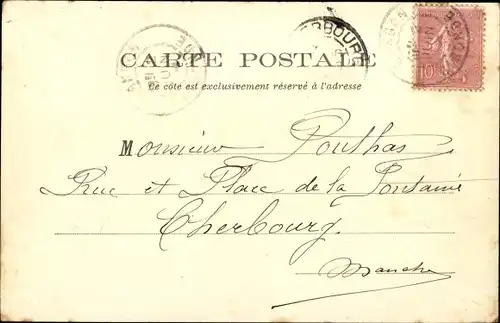 CARTE POSTALE
Ce côté est exclusivement réservé à l'adresse
Monsieur Pouthas
Rue et Place de la Fontaine
Cherbourg.
Manche
10